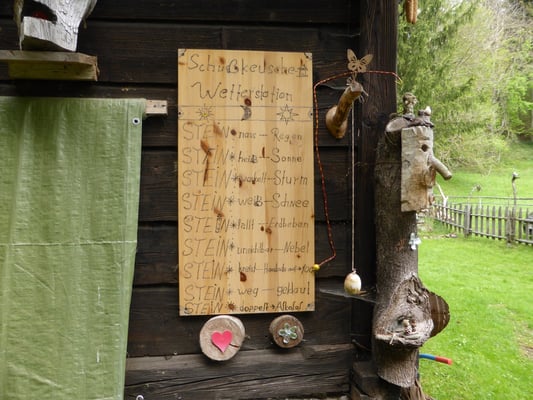 Wetterstation
STEIN nass - Regen
STEIN heiß - Sonne
STEIN wackelt - Sturm
STEIN weiß - Schnee
STEIN fällt - Erdbeben
STEIN unsichtbar - Nebel
STEIN
STEIN weg - geklaut
STEIN doppelt - Alkohol